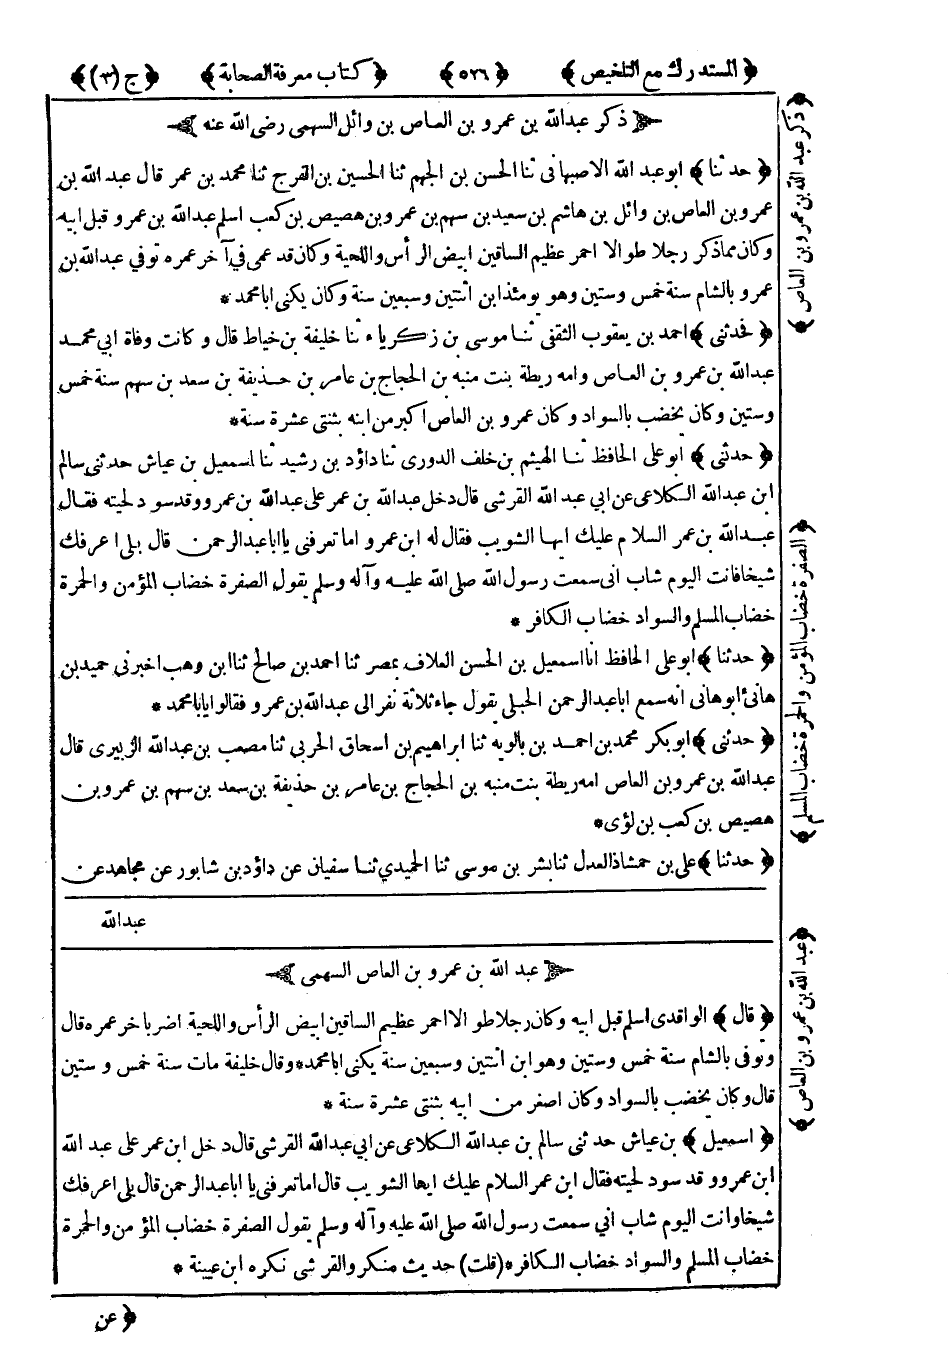 ﴿ المستدرك مع التلخيص ﴾ ﴿ ٥٢٦ ﴾ ﴿ كتاب معرفة الصحابة ﴾ ﴿ ج (٣) ﴾
ذكر عبدالله بن عمرو بن العاص بن وائل السهمى رضى الله عنه
﴿ حدثنا ﴾ ابو عبد الله الاصبهانى ثنا الحسن بن الجهم ثنا الحسين بن الفرج ثنا محمد بن عمر قال عبد الله بن
عمرو بن العاص بن وائل بن هاشم بن سعيد بن سهم بن عمرو بن هصيص بن كعب اسلم عبدالله بن عمرو قبل ابيه
وكان مماذكر رجلا طوالا احمر عظيم الساقين ابيض الرأس واللحية وكان قد عمى في آخر عمره توفي عبدالله بن
عمرو بالشام سنة خمس وستين وهو يومئذ ابن اثنتين وسبعين سنة وكان يكنى ابا محمد *
﴿ فحدثنى ﴾ احمد بن يعقوب الثقفى ثنا موسى بن زكرياء ثنا خليفة بن خياط قال وكانت وفاة ابي محمد
عبدالله بن عمرو بن العاص وامه ريطة بنت منبه بن الحجاج بن عامر بن حذيفة بن سعد بن سهم سنة خمس
وستين وكان يخضب بالسواد وكان عمرو بن العاص اكبر من ابنه بثنتى عشرة سنة*
﴿ حدثنى ﴾ ابو على الحافظ ثنا الهيثم بن خلف الدورى ثنا داؤد بن رشيد ثنا اسمعيل بن عياش حدثنى سالم
ابن عبدالله الكلاعى عن ابي عبد الله القرشى قال دخل عبدالله بن عمر على عبدالله بن عمرو وقد سود لحيته فقال
عبدالله بن عمر السلام عليك ايها الشويب فقال له ابن عمرو اما تعرفنى يا ابا عبدالرحمن قال بلى اعرفك
شيخا فانت اليوم شاب انى سمعت رسول الله صلى الله عليه وآله وسلم يقول الصفرة خضاب المؤمن والحمرة
خضاب المسلم والسواد خضاب الكافر *
﴿ حدثنا ﴾ ابو على الحافظ انا اسمعيل بن الحسن العلاف بمصر ثنا احمد بن صالح ثنا ابن وهب اخبرنى حميد بن
هانئ ابو هانى انه سمع ابا عبدالرحمن الحبلى يقول جاء ثلاثة نفر الى عبدالله بن عمرو فقالوا يابا محمد *
﴿ حدثنى ﴾ ابو بكر محمد بن احمد بن بالويه ثنا ابراهيم بن اسحاق الحربي ثنا مصعب بن عبدالله الزبيرى قال
عبدالله بن عمرو بن العاص امه ريطة بنت منبه بن الحجاج بن عامر بن حذيفة بن سعد بن سهم بن عمرو بن
هصيص بن كعب بن لؤى*
﴿ حدثنا ﴾ على بن حمشاذ العدل ثنا بشر بن موسى ثنا الحميدي ثنا سفيان عن داؤد بن شابور عن مجاهد عن
عبدالله
عبد الله بن عمرو بن العاص السهمى
﴿ قال ﴾ الواقدى اسلم قبل ابيه وكان رجلا طوالا احمر عظيم الساقين ابيض الرأس واللحية اضر باخر عمره قال
وتوفى بالشام سنة خمس وستين وهو ابن اثنتين وسبعين سنة يكنى ابا محمد*وقال خليفة مات سنة خمس وستين
قال وكان يخضب بالسواد وكان اصغر من ابيه بثنتى عشرة سنة *
﴿ اسمعيل ﴾ بن عياش حدثنى سالم بن عبدالله الكلاعى عن ابي عبدالله القرشى قال دخل ابن عمر على عبد الله
ابن عمرو وقد سود لحيته فقال ابن عمر السلام عليك ايها الشويب قال اما تعرفنى يا ابا عبدالرحمن قال بلى اعرفك
شيخا وانت اليوم شاب انى سمعت رسول الله صلى الله عليه وآله وسلم يقول الصفرة خضاب المؤمن والحمرة
خضاب المسلم والسواد خضاب الكافر*(قلت) حديث منكر والقرشى نكره ابن عيينة *
﴿ عن
﴿ ذكر عبد الله بن عمرو بن العاص ﴾
﴿ الصفرة خضاب المؤمن والحمرة خضاب المسلم ﴾
﴿ عبد الله بن عمرو بن العاص ﴾